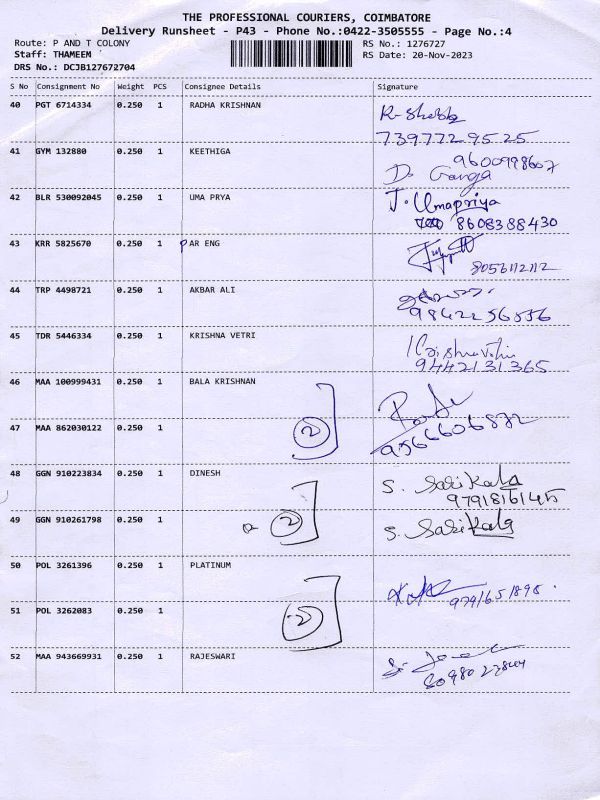 THE PROFESSIONAL COURIERS, COIMBATORE
Delivery Runsheet - P43 - Phone No.:0422-3505555 - Page No.:4
Route: P AND T COLONY
RS No.: 1276727
Staff: THAMEEM
RS Date: 20-Nov-2023
DRS No.: DCJB127672704
S No Consignment No Weight PCS Consignee Details Signature
40 PGT 6714334 0.250 1 RADHA KRISHNAN
7397729525
41 GYM 132880 0.250 1 KEETHIGA 9600998607
D. Ganga
42 BLR 530092045 0.250 1 UMA PRYA J. Umapriya
8608388430
43 KRR 5825670 0.250 1 PAR ENG
8056112112
44 TRP 4498721 0.250 1 AKBAR ALI
9842256556
45 TDR 5446334 0.250 1 KRISHNA VETRI
9442131365
46 MAA 100999431 0.250 1 BALA KRISHNAN
47 MAA 862030122 0.250 1 2
9566606832
48 GGN 910223834 0.250 1 DINESH S. Sasikala
9791816145
49 GGN 910261798 0.250 1 2 S. Sasikala
50 POL 3261396 0.250 1 PLATINUM
9791651898
51 POL 3262083 0.250 1 2
52 MAA 943669931 0.250 1 RAJESWARI